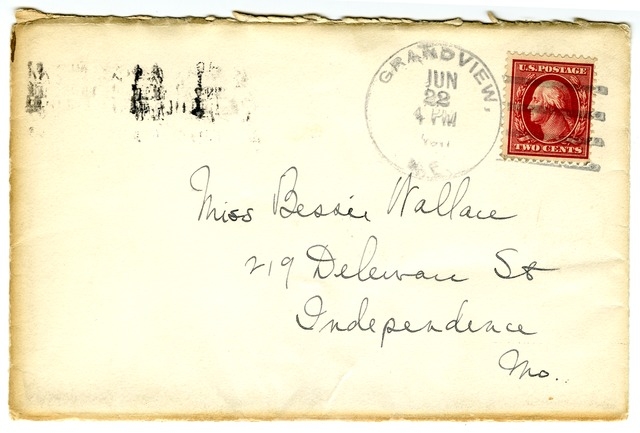 GRANDVIEW,
JUN
22
4 PM
U.S. POSTAGE
TWO CENTS
Miss Bessie Wallace
219 Deleware St
Independence
Mo.